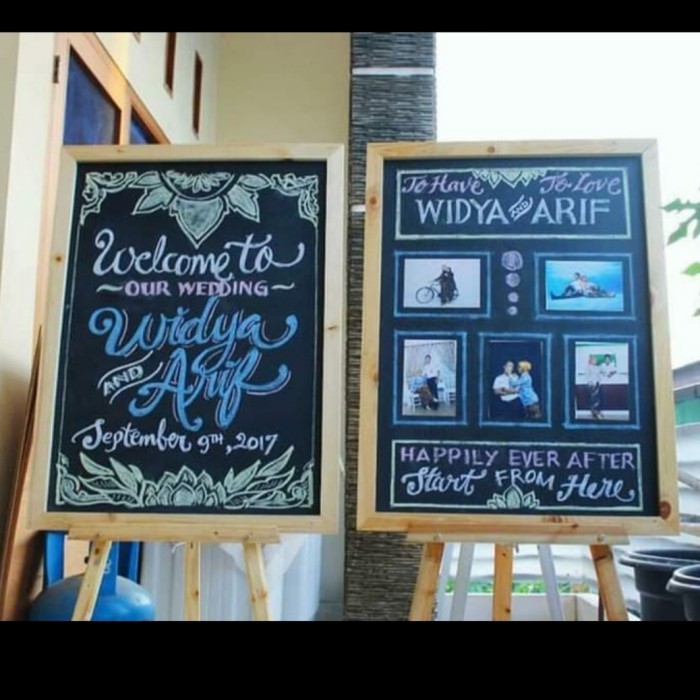 Welcome to
~OUR WEDDING~
Widya
AND Arif
September 9TH, 2017
To Have To Love
WIDYA AND ARIF
HAPPILY EVER AFTER
Start FROM Here